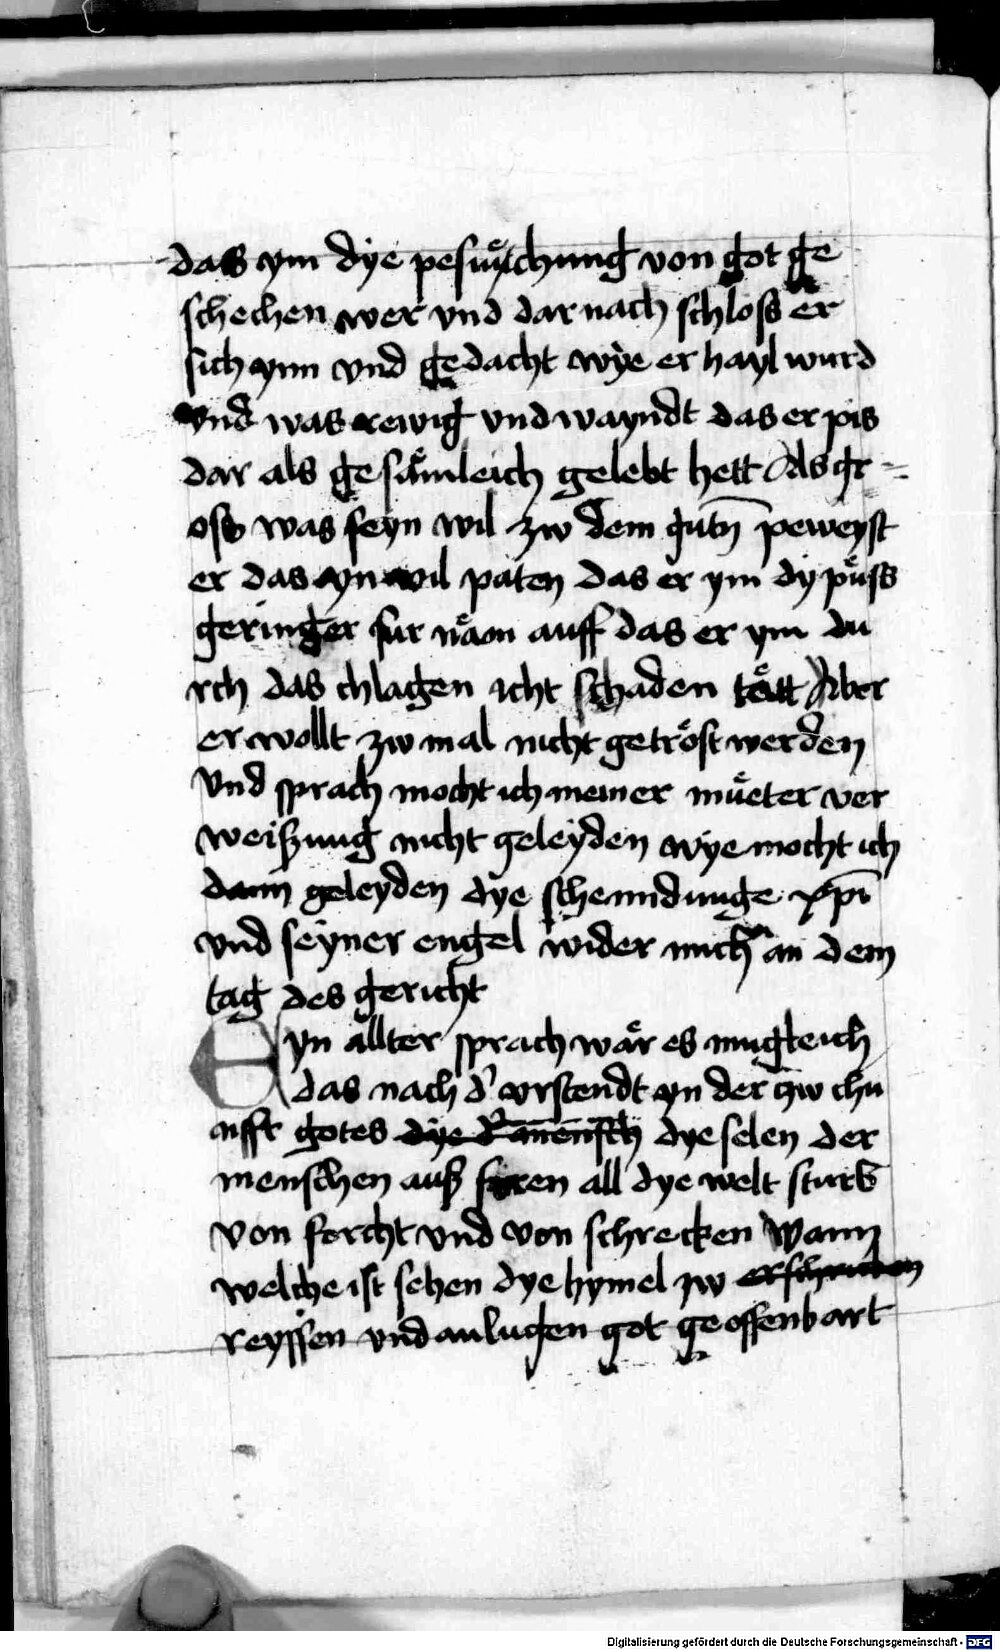 das ym dye pesuͤchung von got ge
schechen wer vnd dar nach schloss er
sich ynn vnd gedacht wye er hayl wurd
vnd was rewig vnd wayndt das er pis
dar als gesaͤmleich gelebt hett Als gr
oss was seyn wil zw dem gutn̄ peweyst
er das yn wil paten das er ym dy puͤss
geringer fur naͤm auff das er ym du
rch das chlagen icht schaden taͤtt Aber
er wollt zw mal nicht getroͤst werden
Vnd sprach mocht ich meiner muͤeter ver
weiszung nicht geleyden wye mocht ich
dann geleyden dye schenndunge xp̄i
vnd seyner engel wider mich an dem
tag des gericht
Eyn allter sprach waͤr es mugleich
das nach d' vrstendt yn der zw chu
nfft gotes dye dye selen der
menschen ausz furen all dye welt sturb
von forcht vnd von schrecken Wann
welche ist sehen dye hymel zw erschrecken
reyssen vnd anlugen got geoffenbart
Digitalisierung gefördert durch die Deutsche Forschungsgemeinschaft - DFG